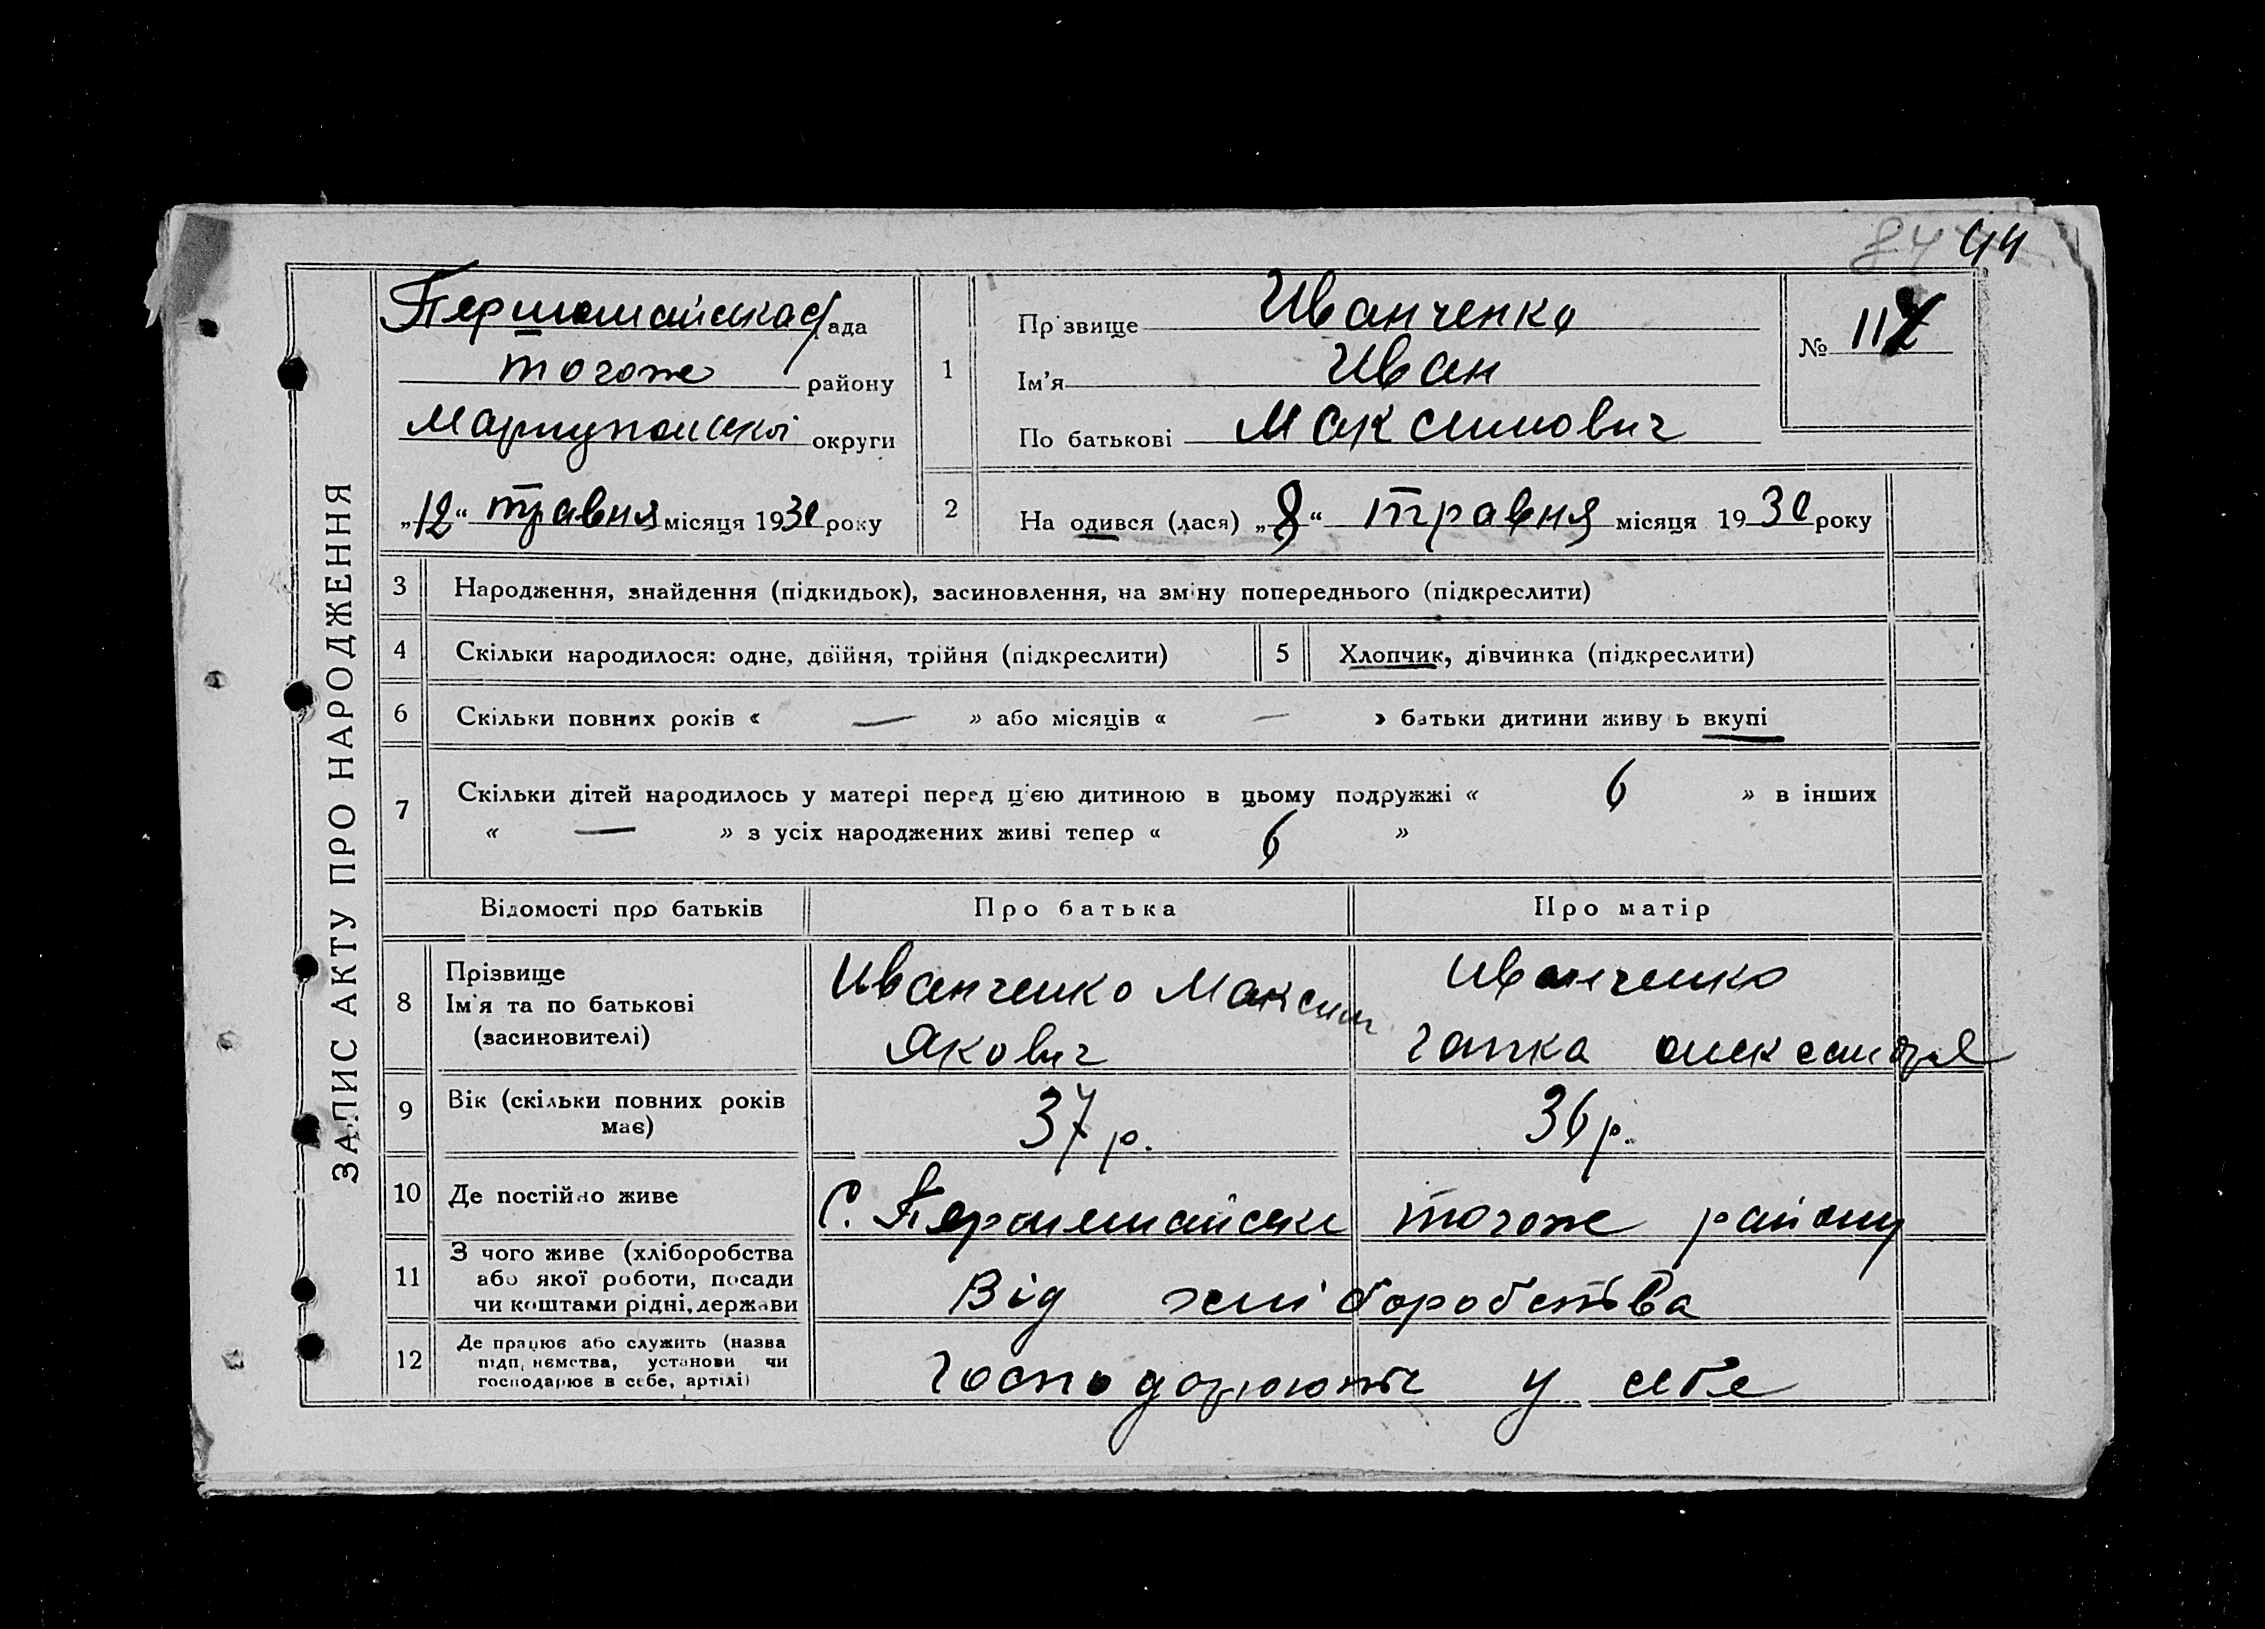 44
ЗАПИС АКТУ ПРО НАРОДЖЕННЯ
Першомайська Рада
тогоже району
Маріупольскої округи
„12“ травня місяця 1930 року
1
Прізвище Иванченко
Ім’я Иван
По батькові Максимович
№ 117
2
На одився (лася) „8“ травня місяця 1930 року
3 Народження, знайдення (підкидьок), засиновлення, на зміну попереднього (підкреслити)
4 Скільки народилося: одне, двійня, трійня (підкреслити)
5 Хлопчик, дівчинка (підкреслити)
6 Скільки повних років « — » або місяців « — » батьки дитини живу ь вкупі
7 Скільки дітей народилось у матері перед цією дитиною в цьому подружжі « 6 » в інших
« — » з усіх народжених живі тепер « 6 »
Відомості про батьків Про батька Про матір
8 Прізвище
Ім’я та по батькові
(засиновителі)
Иванченко Максим
Якович
Иванченко
Гапка олександря
9 Вік (скільки повних років
має)
37 р. 36 р.
10 Де постійно живе С. Першомайське тогоже району
11 З чого живе (хліборобства
або якої роботи, посади
чи коштами рідні, держави
Від хліборобства
12 Де працює або служить (назва
підприємства, установи чи
господарює в себе, артілі)
Господарюють у себе